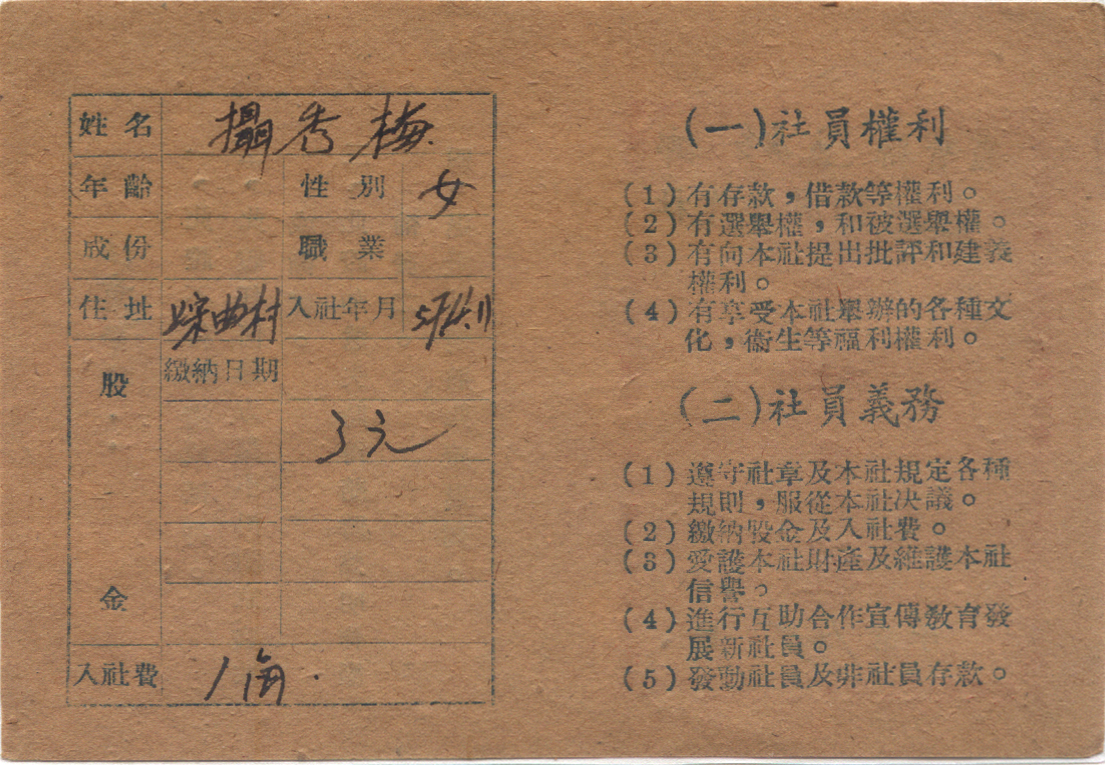 姓名 攝秀梅
年齡 性別 女
成份 職業
住址 曲村 入社年月
股金 繳納日期
3元
入社費 1角.
(一)社員權利
(1)有存款,借款等權利。
(2)有選舉權,和被選舉權。
(3)有向本社提出批評和建義
權利。
(4)有享受本社舉辦的各種文
化,衞生等福利權利。
(二)社員義務
(1)遵守社章及本社規定各種
規則,服從本社决議。
(2)繳納股金及入社費。
(3)愛護本社財產及維護本社
信譽。
(4)進行互助合作宣傳敎育發
展新社員。
(5)發動社員及非社員存款。